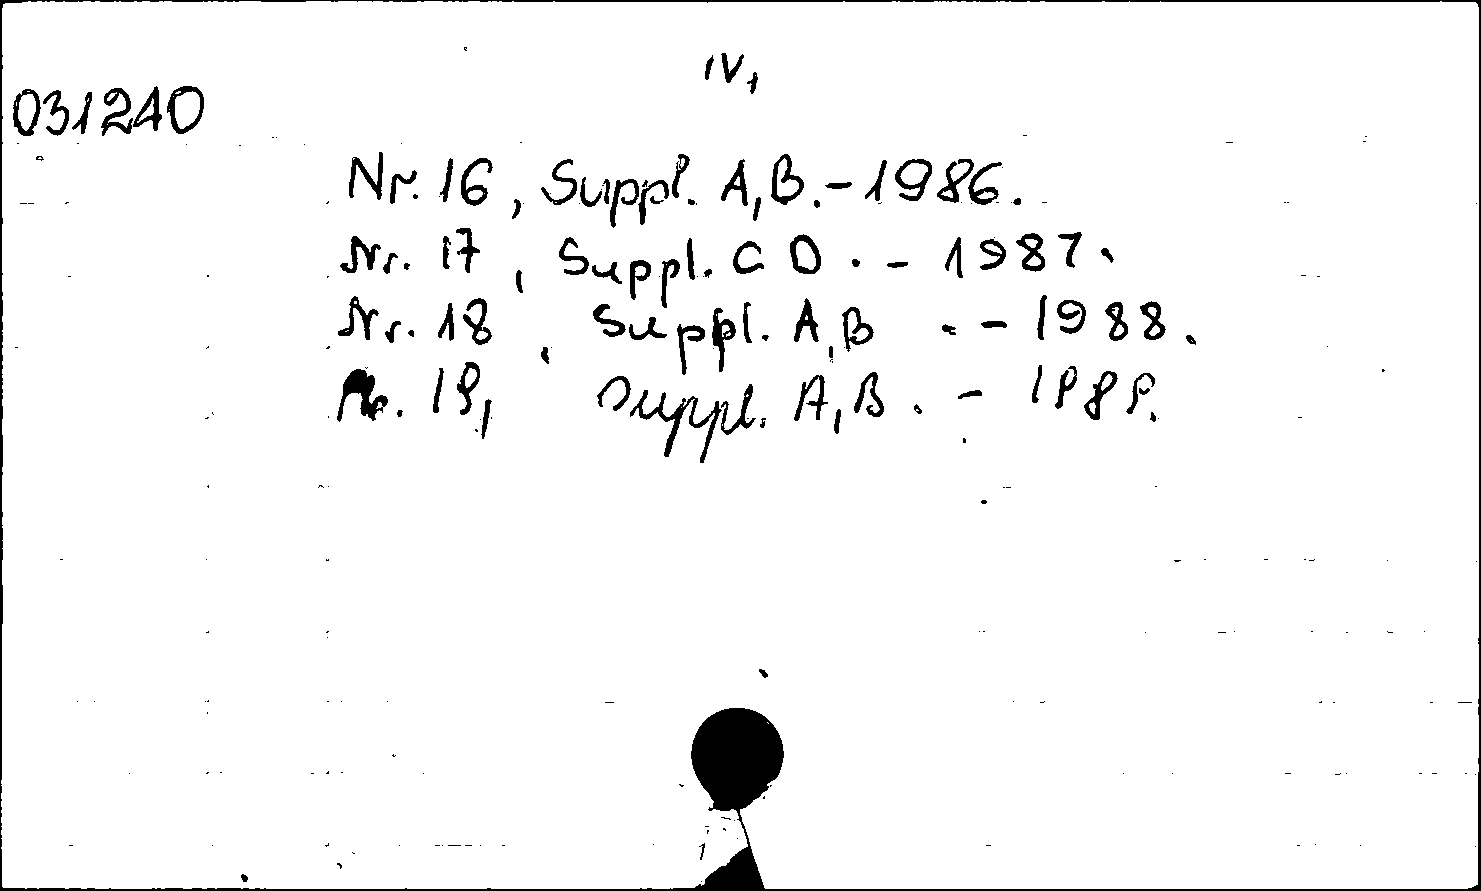 IV,
031240
Nr. 16, Suppl. A,B.-1986.
Nr. 17, Suppl. C D. - 1987.
Nr. 18, Suppl. A,B . - 1988.
Nr. 19, Suppl. A,B . - 1989.